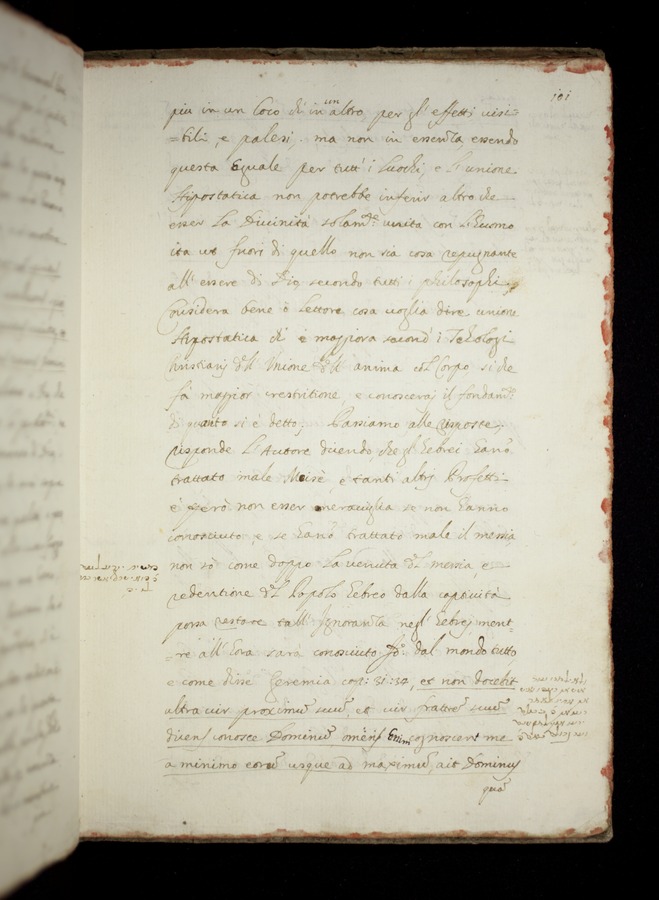 101
più in un loco di in un altro, per gl' effetti visi-
=bili, e palesi, ma non in essenza essendo
questa Eguale per tutt' i Luochi, e l' unione
Hipostatica non potrebbe inferir altro che
esser la Divinità solam.te unita con l'huomo
ita ut fuori di quello non sia cosa repugnante
all' essere di Dio secondo tutti i philosophi,
Considera bene ò lettore cosa voglia dire unione
Hipostatica ch' è maggiora second' i Theologi
Christiani dell' Unione dell' anima col Corpo si che
fà maggior restritione, e conoscerai il fondam.to
di quanto si è detto; Passiamo alle risposte,
risponde l' Autore dicendo, che gl' hebrei hanno
trattato male Moisè, e tanti altri Profetti
è però non esser meraviglia se non hanno
conosciuto, e se hanno trattato male il messia,
non sò come doppo la venuta del messia, e
redentione del Popolo Hebreo dalla captività
possa restare tall' Ignoranza negl' hebrei, ment-
=re all' hora sarà conosciuto Idio dal mondo tutto
e come disse Geremia cap: 31: 34, et non docebit
altra vir proximũ suũ et vir frattrẽ suũ
dicens conosce Dominũ omẽs Enim cognoscent me
a minimo eorũ usque ad maximũ, ait Dominus